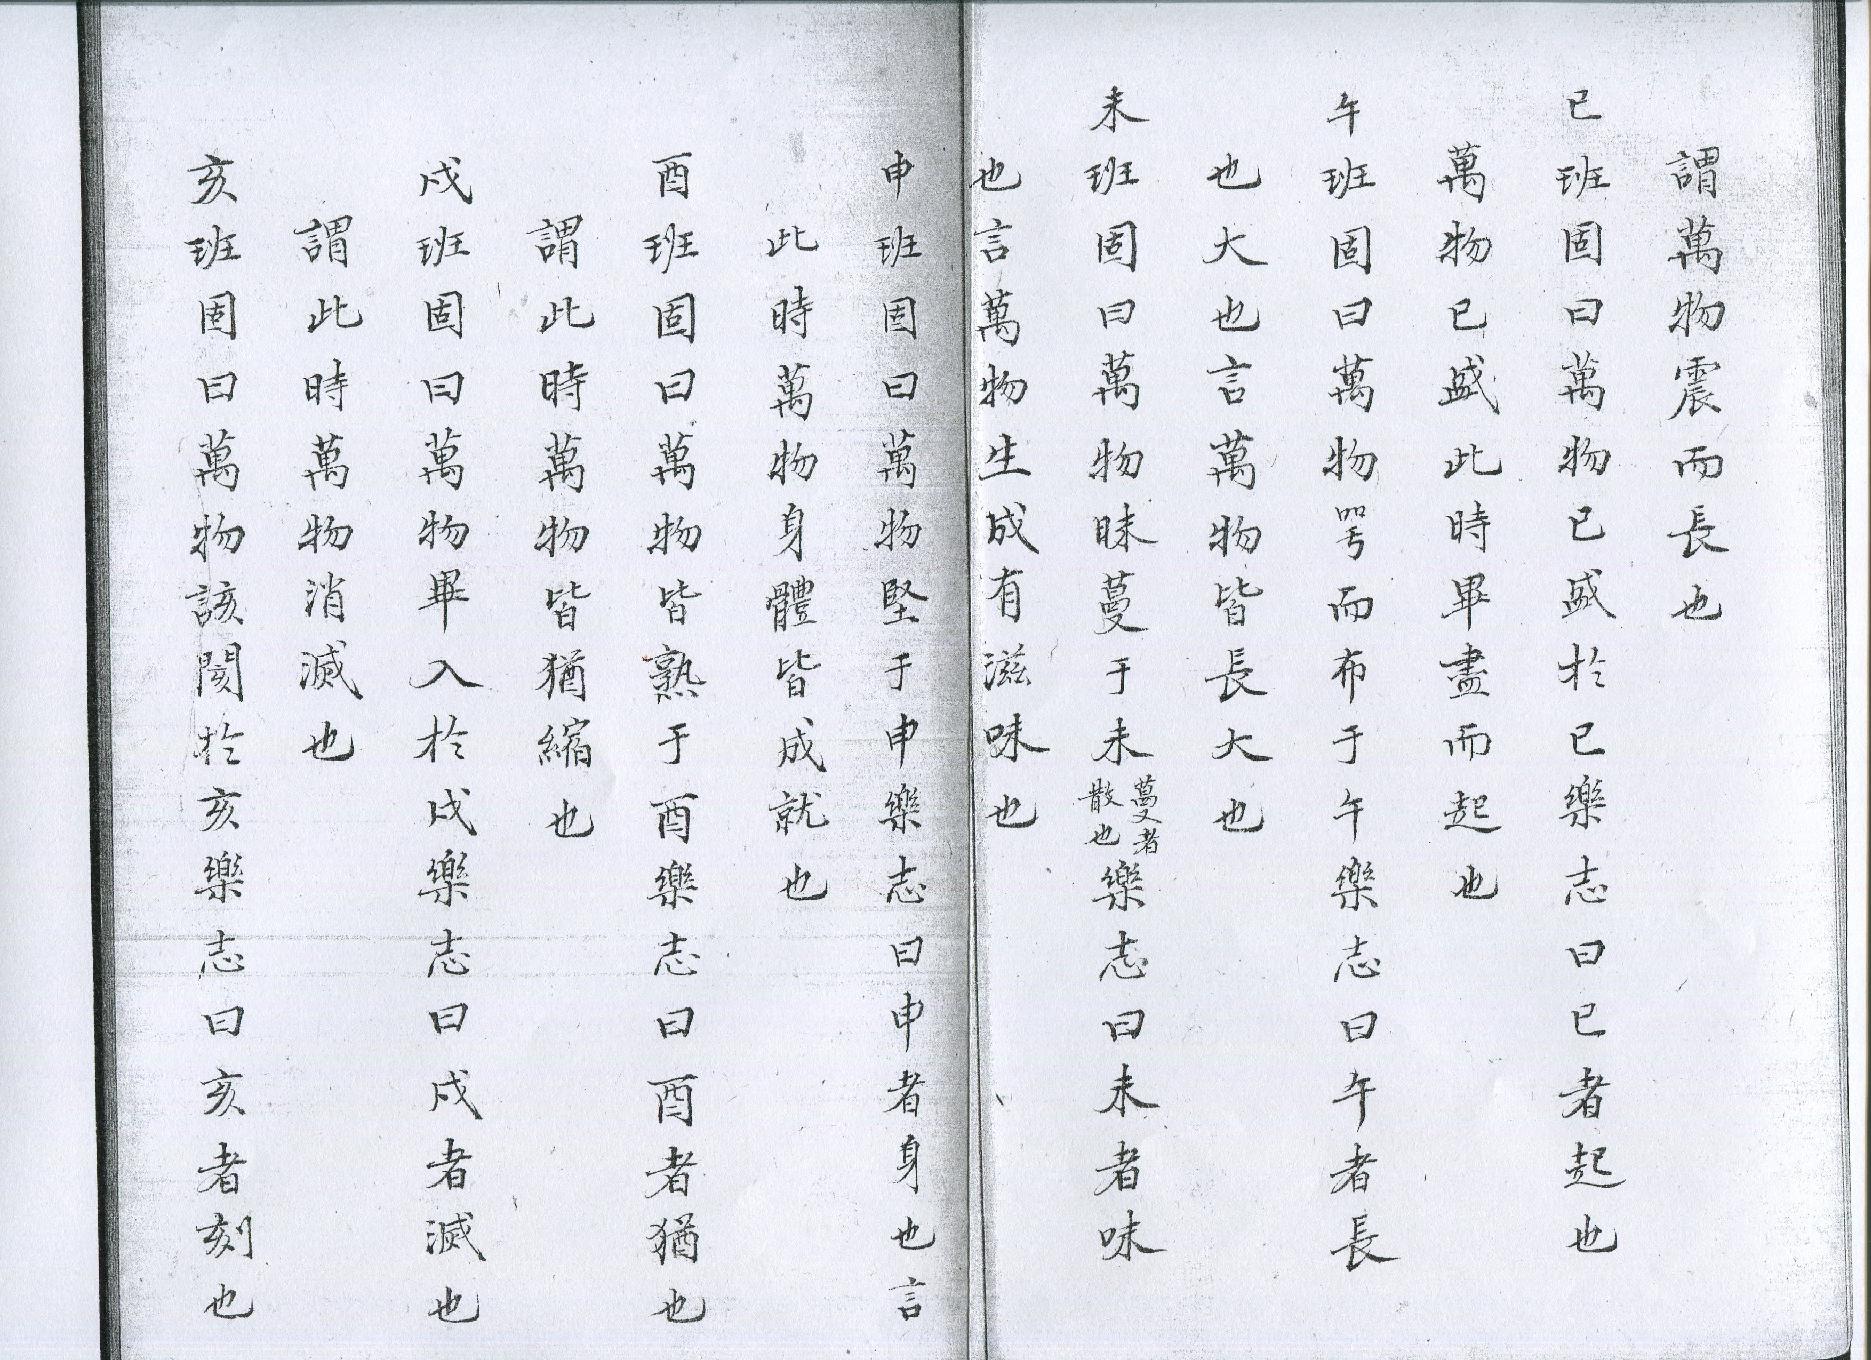 謂萬物震而長也
巳班固曰萬物已盛於巳樂志曰巳者起也
萬物已盛此時畢盡而起也
午班固曰萬物咢而布于午樂志曰午者長
也大也言萬物皆長大也
未班固曰萬物昧蔓于未蔓者散也樂志曰未者味
也言萬物生成有滋味也
申班固曰萬物堅于申樂志曰申者身也言
此時萬物身體皆成就也
酉班固曰萬物皆熟于酉樂志曰酉者猶也
謂此時萬物皆猶縮也
戌班固曰萬物畢入於戌樂志曰戌者滅也
謂此時萬物消滅也
亥班固曰萬物該閡於亥樂志曰亥者刻也